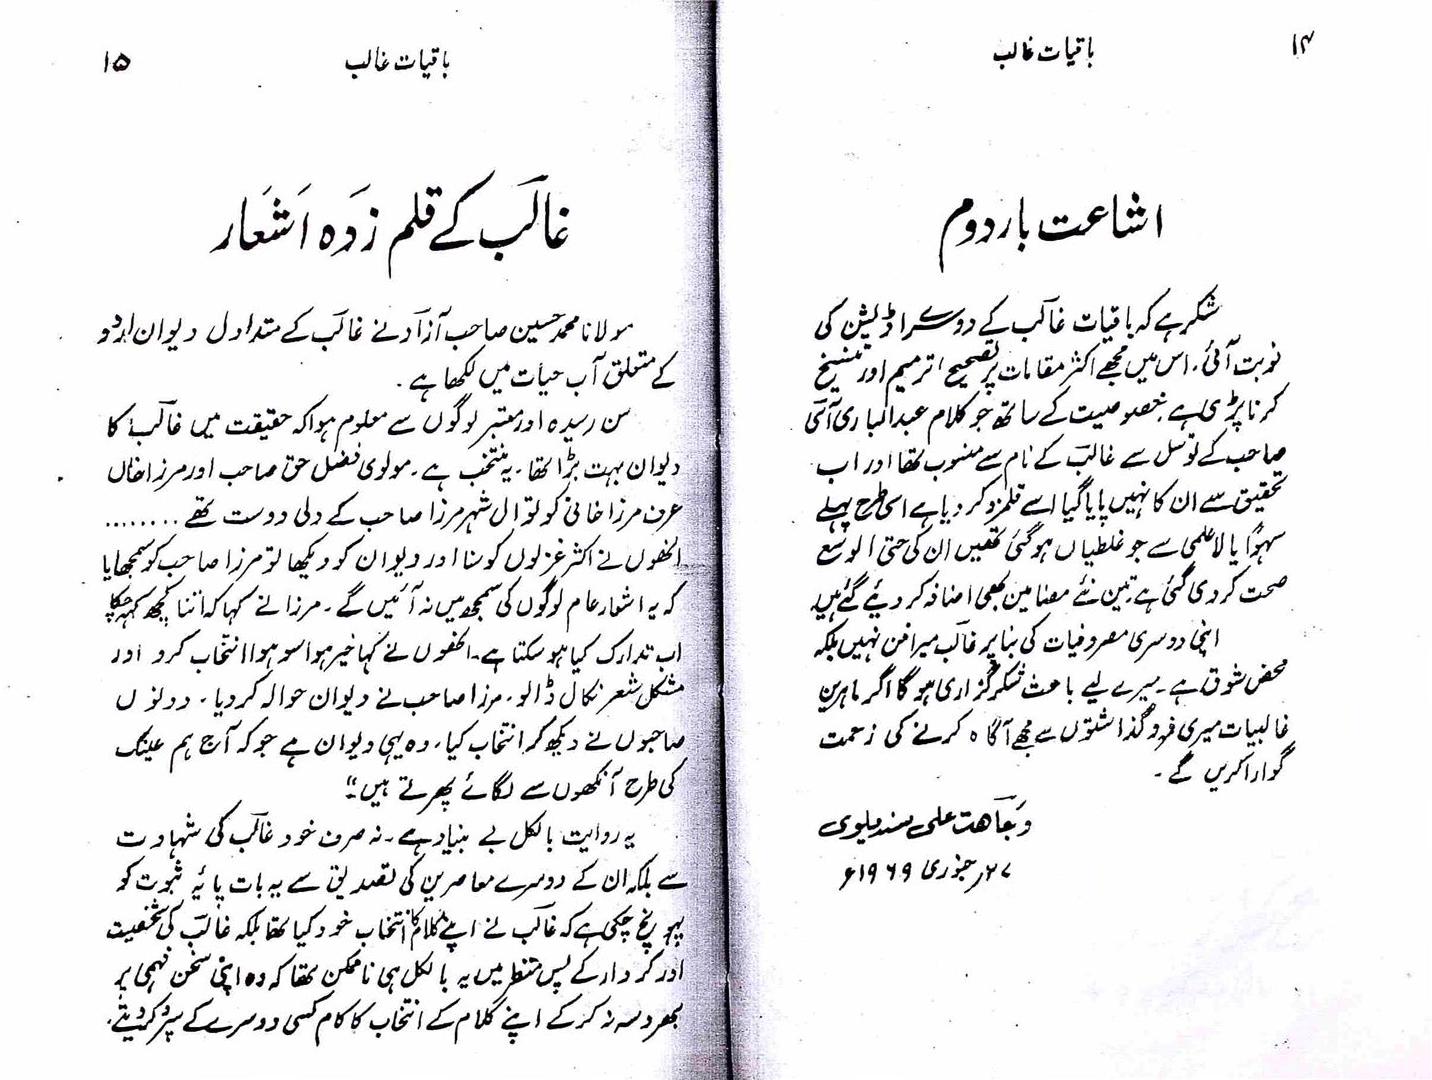 ۱۴
باقیات غالب
اشاعت بار دوم
شکر ہے کہ باقیات غالب کے دوسرے اڈیشن کی
نوبت آئی۔ اس میں مجھے اکثر مقامات پر تصحیح، ترمیم اور تنسیخ
کرنا پڑی ہے۔ خصوصیت کے ساتھ جو کلام عبدالباری آسی
صاحب کے توسل سے غالب کے نام سے منسوب تھا اور اب
تحقیق سے ان کا نہیں پایا گیا اسے قلمزد کر دیا ہے اسی طرح پہلے
سہواً یا لاعلمی سے جو غلطیاں ہو گئی تھیں ان کی حتی الوسع
صحت کر دی گئی ہے۔ تین نئے مضامین بھی اضافہ کر دیئے گئے ہیں
اپنی دوسری مصروفیات کی بنا پر غالب میرا فن نہیں بلکہ
محض شوق ہے۔ میرے لیے باعث شکر گزاری ہو گا اگر ماہرین
غالبیات میری فروگذاشتوں سے مجھے آگاہ کرنے کی زحمت
گوارا کریں گے۔
وجاھت علی سندیلوی
۲۷ر جنوری ۱۹۶۹ء
۱۵
باقیات غالب
غالب کے قلم زدہ اشعار
مولانا محمد حسین صاحب آزاد نے غالب کے متداول دیوان اردو
کے متعلق آب حیات میں لکھا ہے۔
سن رسیدہ اور معتبر لوگوں سے معلوم ہوا کہ حقیقت میں غالب کا
دیوان بہت بڑا تھا۔ یہ منتخب ہے۔ مولوی فضل حق صاحب اور مرزا خاں
عرف مرزا خانی کوتوال شہر مرزا صاحب کے دلی دوست تھے ........
انھوں نے اکثر غزلوں کو سنا اور دیوان کو دیکھا تو مرزا صاحب کو سمجھایا
کہ یہ اشعار عام لوگوں کی سمجھ میں نہ آئیں گے۔ مرزا نے کہا کہ اتنا کچھ کہہ چکا
اب تدارک کیا ہو سکتا ہے۔ انھوں نے کہا خیر ہوا سو ہوا انتخاب کرو اور
مشکل شعر نکال ڈالو۔ مرزا صاحب نے دیوان حوالہ کر دیا۔ دونوں
صاحبوں نے دیکھ کر انتخاب کیا۔ وہ یہی دیوان ہے جو کہ آج ہم عینک
کی طرح آنکھوں سے لگائے پھرتے ہیں۔“
یہ روایت بالکل بے بنیاد ہے۔ نہ صرف خود غالب کی شہادت
سے بلکہ ان کے دوسرے معاصرین کی تصدیق سے یہ بات پائیہ ثبوت کو
پہونچ چکی ہے کہ غالب نے اپنے کلام کا انتخاب خود کیا تھا بلکہ غالب کی شخصیت
اور کردار کے پس منظر میں یہ بالکل ہی ناممکن تھا کہ وہ اپنی سخن فہمی پر
بھروسہ نہ کر کے اپنے کلام کے انتخاب کا کام کسی دوسرے کے سپرد کر دیتے۔